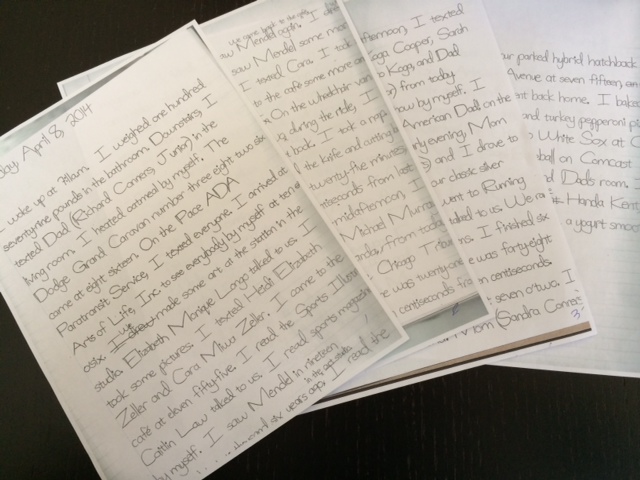 day April 8, 2014
I woke up at 7:11am. I weighed one hundred
seventy-nine pounds in the bathroom. Downstairs, I
texted Dad (Richard Conners, Junior) in the
living room. I heated oatmeal by myself. The
Dodge Grand Caravan number three eight two six
came at eight sixteen. On the Pace ADA
Paratransit Service, I texted everyone. I arrived at
Arts of Life, Inc. to see everybody by myself at ten
o'six. I made some art at the station in the
studio. Elizabeth Monique Longo talked to us. I
took some pictures. I texted Heidi Elizabeth
Zeller and Cara Miwa Zeller. I came to the
café at eleven fifty-five. I read the Sports Illus
Caitlin Law talked to us. I read sports magazi
by myself. I saw Mendel in nineteen
in the art studio.
six years ago. I read the
We came back to the
saw Mendel again. I
saw Mendel some mor
I texted Cara. I took
to the café some more
On the wheelchair van
during the ride, I
back. I took a nap
the knife and cutting b
twenty-five minutes
centiseconds from last
midafternoon, I
Michael Murra
from today
Chicago Tribun
e was twenty-one
centiseconds fro
2
afternoon, I texted
Kaga Cooper, Sarah
o Kaga, and Dad
from today
how by myself. I
American Dad on the
ly evening, Mom
and I drove to
our classic silver
went to Running
talked to us. We ra
ns. I finished six
e was forty-eight
n centiseconds
seven o'two. I
Mom (Sandra Conners
3
ur parked hybrid hatchback
Avenue at seven fifteen, an
nt back home. I bake
and turkey pepperoni pi
White Sox at C
ball on Comcast
nd Dad's room. I
Handa Kent
a yogurt smoo